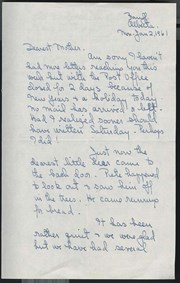 Banff
Alberta
Mon. Jan 2, 1961
Dearest Mother,
Am sorry I haven't
had more letters reaching you this
week but with the Post Office
closed for 2 days because of
New Years & a holiday Today
no mail has arrived &
I realized sooner should
have written Saturday. Perhaps
I did!
Just now the
dearest little came to
the back door. Pete happened
to look out & saw him off
in the trees. He came running
for bread.
It has been
rather quiet & we were glad
but we have had several